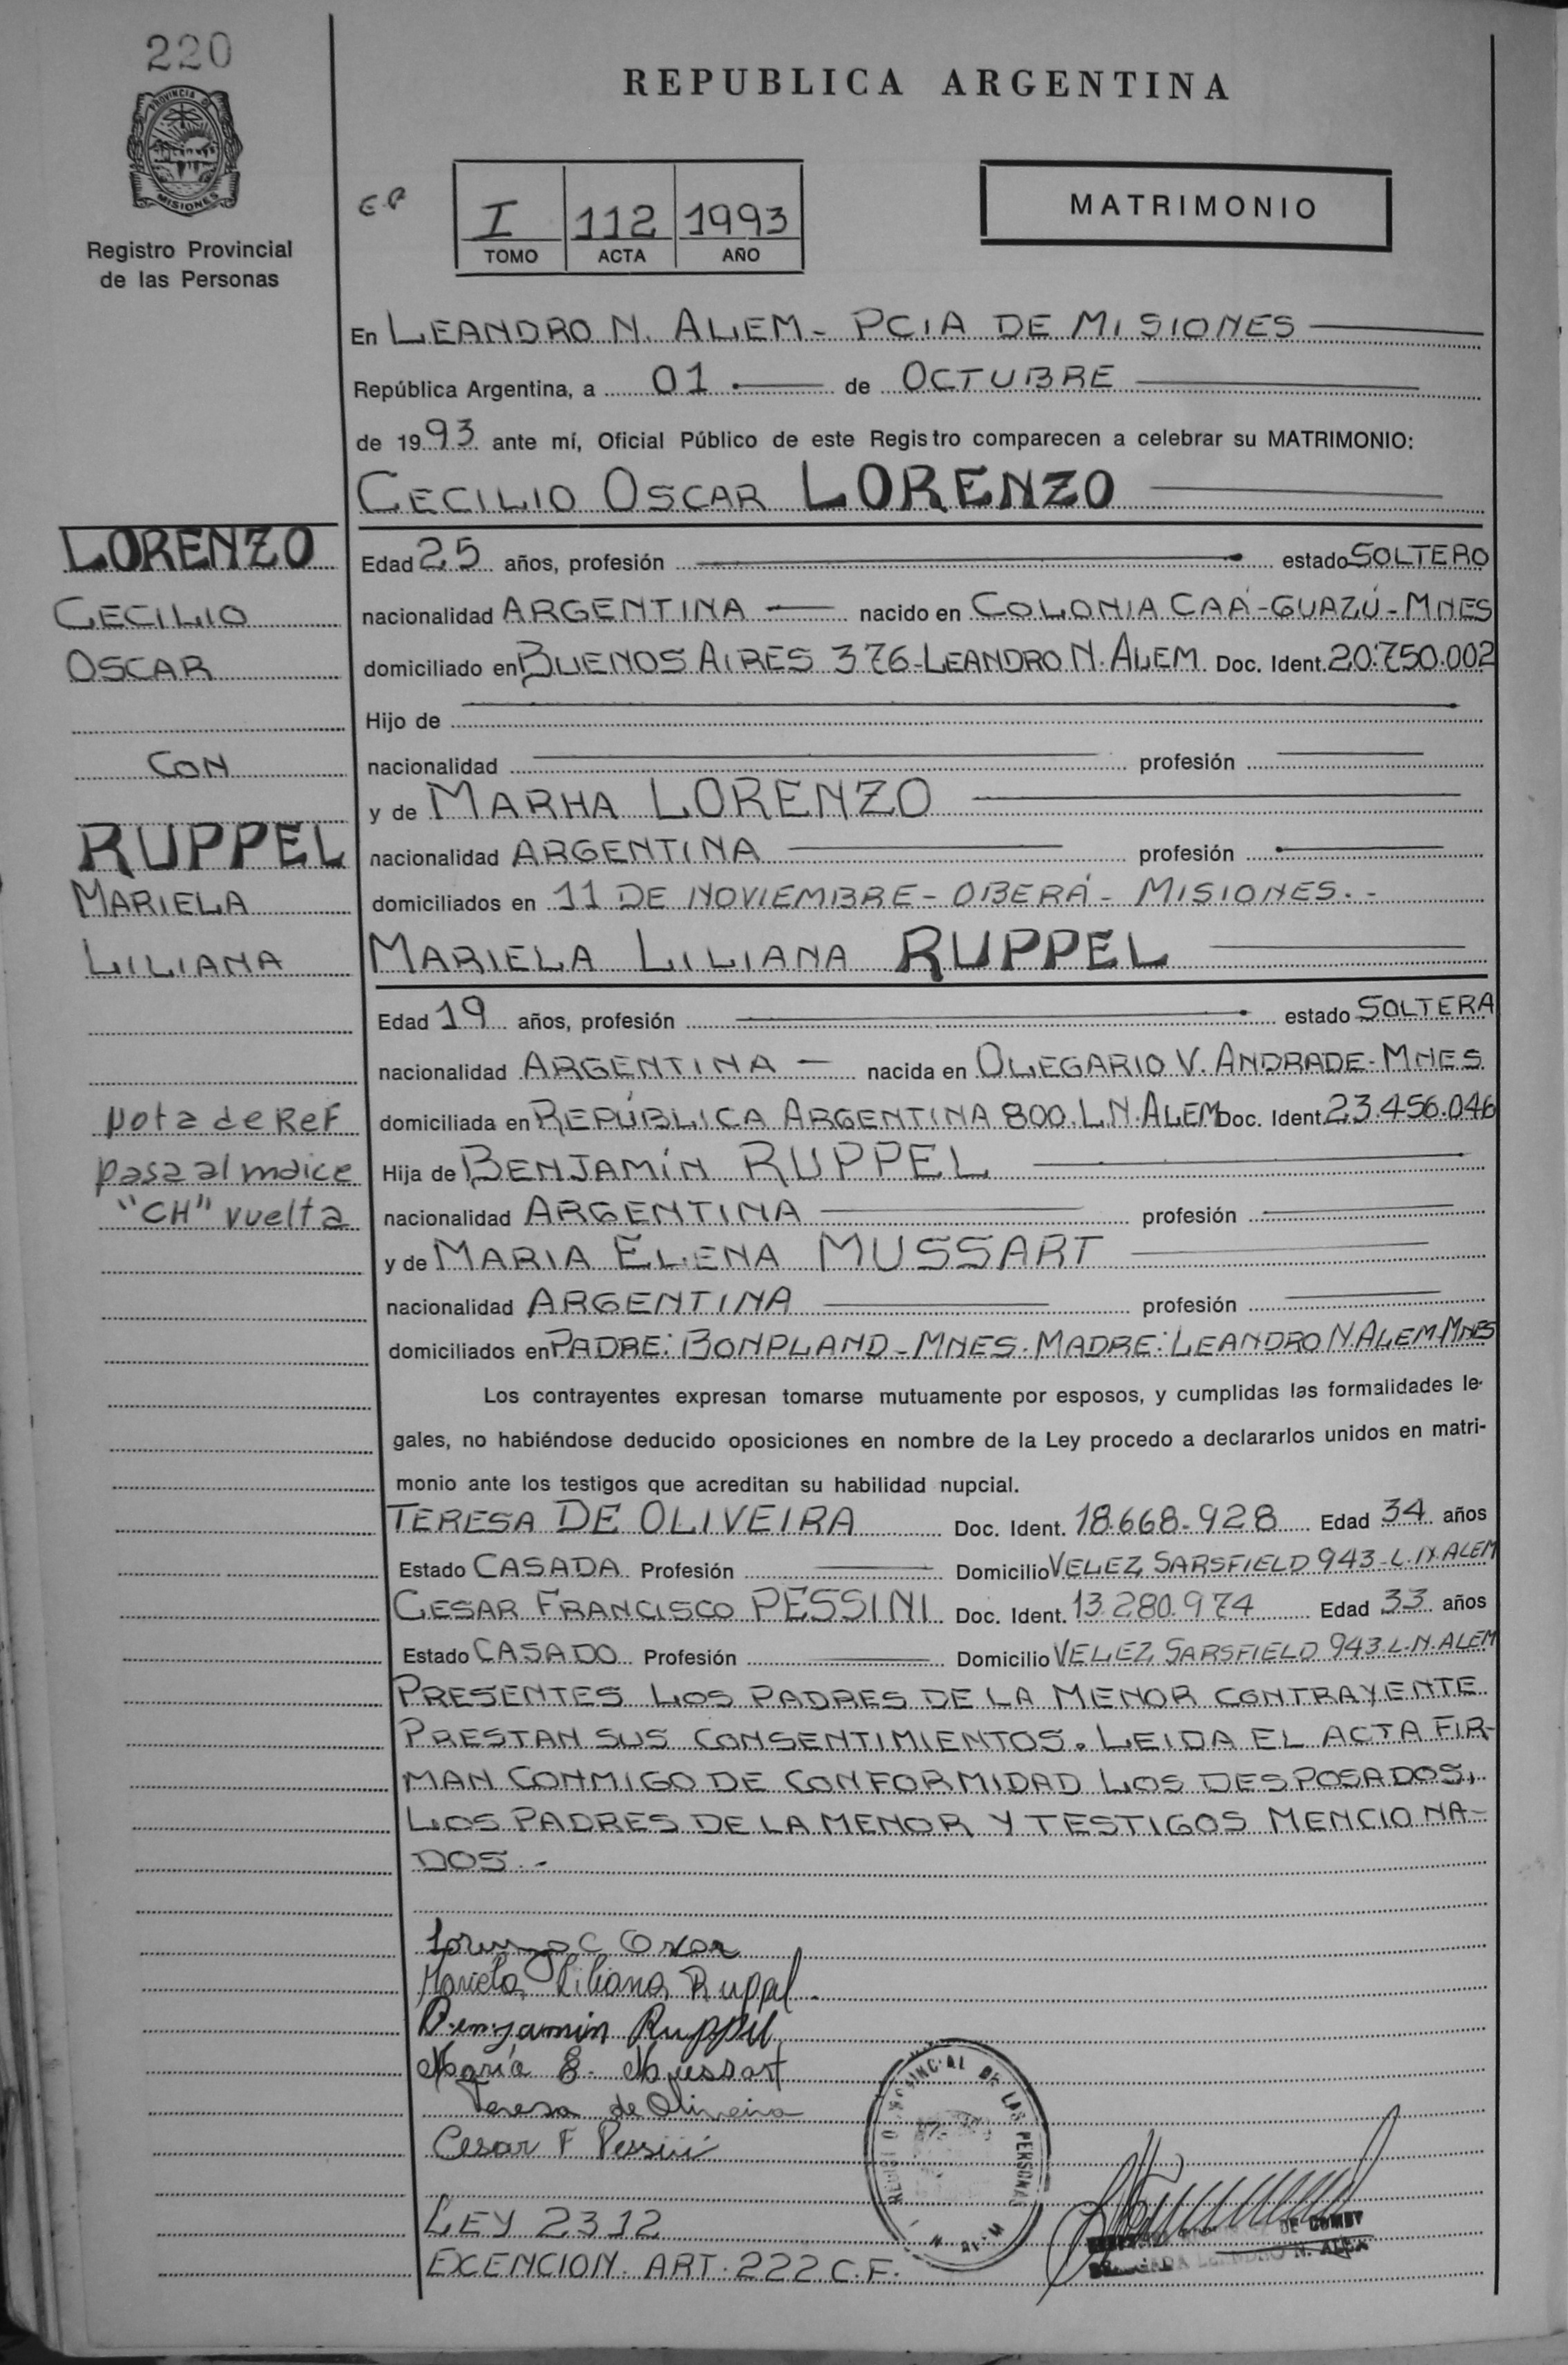 220
REPUBLICA ARGENTINA
PROVINCIA D
MISIONES
Registro Provincial
de las Personas
E.P
I 112 1993
TOMO ACTA AÑO
MATRIMONIO
En LEANDRO N. ALEM - PCIA DE MISIONES
República Argentina, a 01 de OCTUBRE
de 1993 ante mí, Oficial Público de este Registro comparecen a celebrar su MATRIMONIO:
CECILIO OSCAR LORENZO
LORENZO
CECILIO
OSCAR
CON
RUPPEL
MARIELA
LILIANA
Nota de Ref
pasa al indice
"CH" vuelta
Edad 25 años, profesión estado SOLTERO
nacionalidad ARGENTINA nacido en COLONIA CAÁ-GUAZÚ-MNES
domiciliado en BUENOS AIRES 376-LEANDRO N. ALEM Doc. Ident. 20.750.002
Hijo de
nacionalidad profesión
y de MARHA LORENZO
nacionalidad ARGENTINA profesión
domiciliados en 11 DE NOVIEMBRE - OBERÁ - MISIONES.-
MARIELA LILIANA RUPPEL
Edad 19 años, profesión estado SOLTERA
nacionalidad ARGENTINA nacida en OLEGARIO V. ANDRADE-MNES
domiciliada en REPÚBLICA ARGENTINA 800.L.N.ALEM Doc. Ident. 23.456.046
Hija de BENJAMÍN RUPPEL
nacionalidad ARGENTINA profesión
y de MARIA ELENA MUSSART
nacionalidad ARGENTINA profesión
domiciliados en PADRE: BONPLAND-MNES. MADRE: LEANDRO N.ALEM-MNES
Los contrayentes expresan tomarse mutuamente por esposos, y cumplidas las formalidades le-
gales, no habiéndose deducido oposiciones en nombre de la Ley procedo a declararlos unidos en matri-
monio ante los testigos que acreditan su habilidad nupcial.
TERESA DE OLIVEIRA Doc. Ident. 18.668.928 Edad 34 años
Estado CASADA Profesión Domicilio VELEZ SARSFIELD 943-L.N.ALEM
CESAR FRANCISCO PESSINI Doc. Ident. 13.280.974 Edad 33 años
Estado CASADO Profesión Domicilio VELEZ SARSFIELD 943.L.N.ALEM
PRESENTES LOS PADRES DE LA MENOR CONTRAYENTE
PRESTAN SUS CONSENTIMIENTOS. LEIDA EL ACTA FIR-
MAN CONMIGO DE CONFORMIDAD LOS DESPOSADOS,
LOS PADRES DE LA MENOR Y TESTIGOS MENCIONA-
DOS.-
Lorenzo C Oscar
Mariela Liliana Ruppel.
Benjamin Ruppel
María E. Mussart
Teresa de Oliveira
Cesar F Pessini
DE LAS PERSONAS
LEY 2312
EXENCION. ART. 222 C.F.
LEANDRO N. ALEM